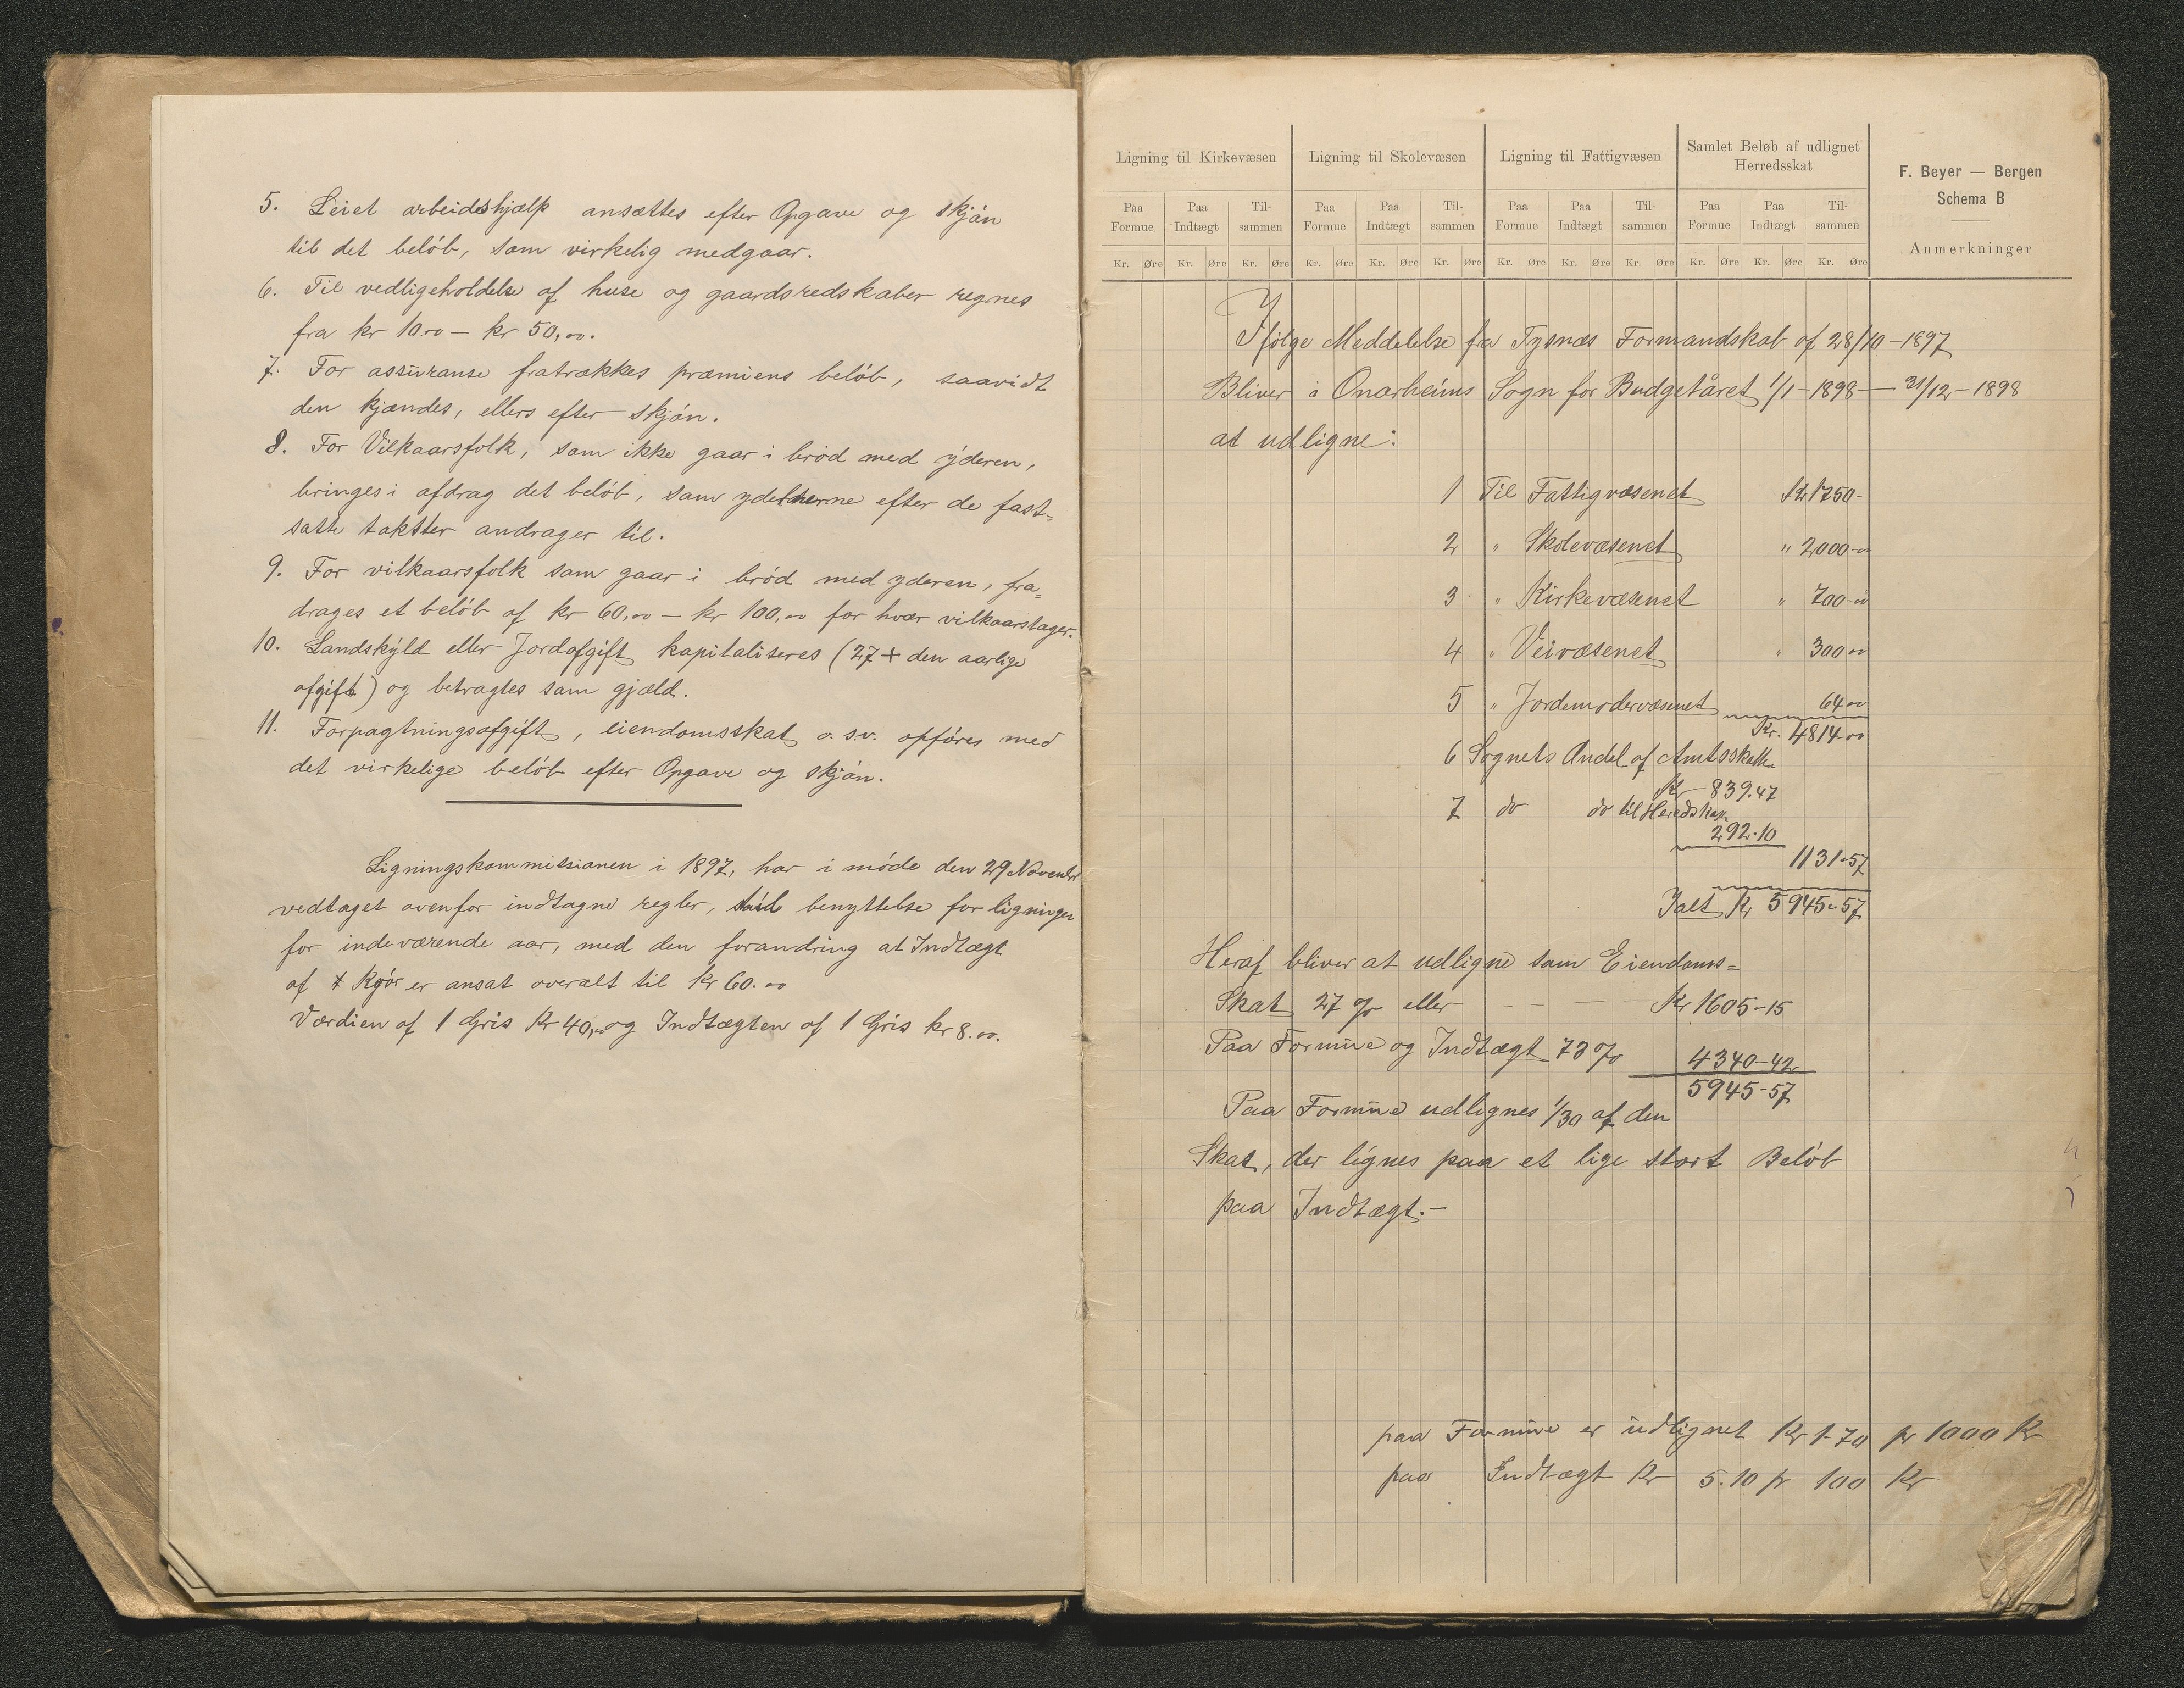 5. Leiet arbeidshjælp ansættes efter Opgave og skjøn
til det beløb, som virkelig medgaar.
6. Til vedligeholdelse af huse og gaardsredskaber regnes
fra kr 10.00 — kr 50,00.
7. For assuranse fratrækkes præmiens beløb, saavidt
den kjændes, ellers efter skjøn.
8. For Vilkaarsfolk, som ikke gaar i brød med yderen,
bringes i afdrag det beløb, som ydelserne efter de fast=
satte takster andrager til.
9. For vilkaarsfolk som gaar i brød med yderen, fra=
drages et beløb af kr 60,00 — kr 100,00 for hver vilkaarstager.
10. Landskyld eller Jordafgift kapitaliseres (27 + den aarlige
afgift) og betragtes som gjæld.
11. Forpagtningsafgift, eiendomsskat o.s.v. opføres med
det virkelige beløb efter Opgave og skjøn.
Ligningskommissionen i 1897, har i møde den 29 Novembr
vedtaget ovenfor indtagne regler, til benyttelse for ligningen
for indeværende aar, med den forandring at Indtægt
af 1 Kjør er ansat overalt til Kr 60.00
Værdien af 1 Gris Kr 40,00 og Indtægten af 1 Gris kr 8.00.
Ligning til Kirkevæsen Ligning til Skolevæsen Ligning til Fattigvæsen Samlet Beløb af udlignet Herredsskat F. Beyer — Bergen
Schema B
Anmerkninger
Paa Formue Paa Indtægt Til-sammen Paa Formue Paa Indtægt Til-sammen Paa Formue Paa Indtægt Til-sammen Paa Formue Paa Indtægt Til-sammen
Kr. Øre Kr. Øre Kr. Øre Kr. Øre Kr. Øre Kr. Øre Kr. Øre Kr. Øre Kr. Øre Kr. Øre Kr. Øre Kr. Øre
Ifølge Meddelelse fra Tysnæs Formandskab af 28/10 - 1897
Bliver i Onarheims Sogn for Budgetåret 1/1 - 1898 — 31/12 - 1898
at udligne:
1 Til Fattigvæsenet 1750-
2 " Skolevæsenet " 2000-00
3 " Kirkevæsenet " 700-00
4 " Veivæsenet " 300 00
5 " Jordemodervæsenet 64 00
Kr. 4814 00
6 Sognets Andel af Amtsskatten
Kr 839.47
7 do do til Heredskass
292.10
1131-57
Ialt Kr 5945-57
Heraf bliver at udligne som Eiendoms=
Skat 27 % eller - - — — Kr 1605-15
Paa Formue og Indtægt 73 % 4340-42
5945-57
Paa Formue udlignes 1/30 af den
Skat, der lignes paa et lige stort Beløb
paa Indtægt.-
paa Formue er udlignet Kr 1-70 pr 1000 Kr
paa Indtægt Kr 5.10 pr 100 Kr